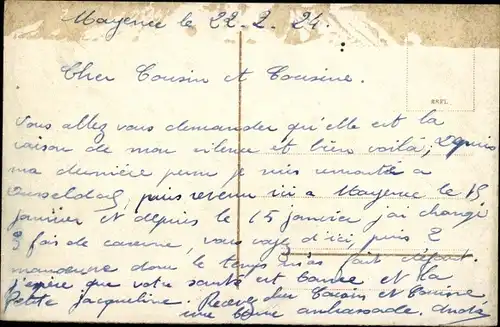 Mayence le 22. 2. 24.
Cher Cousin et Cousine.
REPL
Vous allez vous demander qu'elle est la
raison de mon silence et bien voilà, Depuis
ma dernière perm je suis remonté a
Dusseldorf, puis revenu ici a Mayence le 15
janvier et depuis le 15 janvier j'ai changé
3 fois de caserne, vous voyez d'ici, puis 2
manoeuvre donc le temps m'as fait défaut.
j'espère que votre santé est bonne et la
Petite Jacqueline. Recevez cher Cousin et Cousine
une bonne ambrassade. André